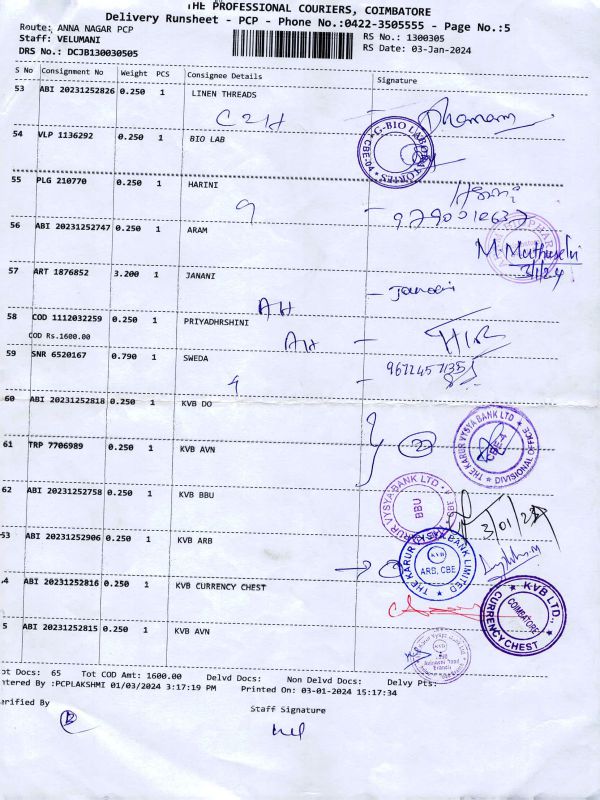 THE PROFESSIONAL COURIERS, COIMBATORE
Delivery Runsheet - PCP - Phone No.:0422-3505555 - Page No.:5
Route: ANNA NAGAR PCP
Staff: VELUMANI
DRS No.: DCJB130030505
RS No.: 1300305
RS Date: 03-Jan-2024
S No Consignment No Weight PCS Consignee Details Signature
53 ABI 20231252826 0.250 1 LINEN THREADS
Dhanam
54 VLP 1136292 0.250 1 BIO LAB
G-BIO LABORATORIES
CBE-04
55 PLG 210770 0.250 1 HARINI
9
9790012637
56 ABI 20231252747 0.250 1 ARAM
M. Muthuselvi
3/1/24
57 ART 1876852 3.200 1 JANANI
Janani
AH
58 COD 1112032259 0.250 1 PRIYADHRSHINI
COD Rs.1600.00
59 SNR 6520167 0.790 1 SWEDA
9
60 ABI 20231252818 0.250 1 KVB DO
2
THE KARUR VYSYA BANK LTD
DIVISIONAL OFFICE
61 TRP 7706989 0.250 1 KVB AVN
62 ABI 20231252758 0.250 1 KVB BBU
KARUR VYSYA BANK LTD
BBU
53 ABI 20231252906 0.250 1 KVB ARB
THE KARUR VYSYA BANK LIMITED
KVB
ARB, CBE
.4 ABI 20231252816 0.250 1 KVB CURRENCY CHEST
KVB LTD.,
COIMBATORE
CURRENCY CHEST
5 ABI 20231252815 0.250 1 KVB AVN
Avinashi Road
Branch
ot Docs: 65 Tot COD Amt: 1600.00 Delvd Docs: Non Delvd Docs: Delvy Pts:
ntered By :PCPLAKSHMI 01/03/2024 3:17:19 PM Printed On: 03-01-2024 15:17:34
erified By
Staff Signature